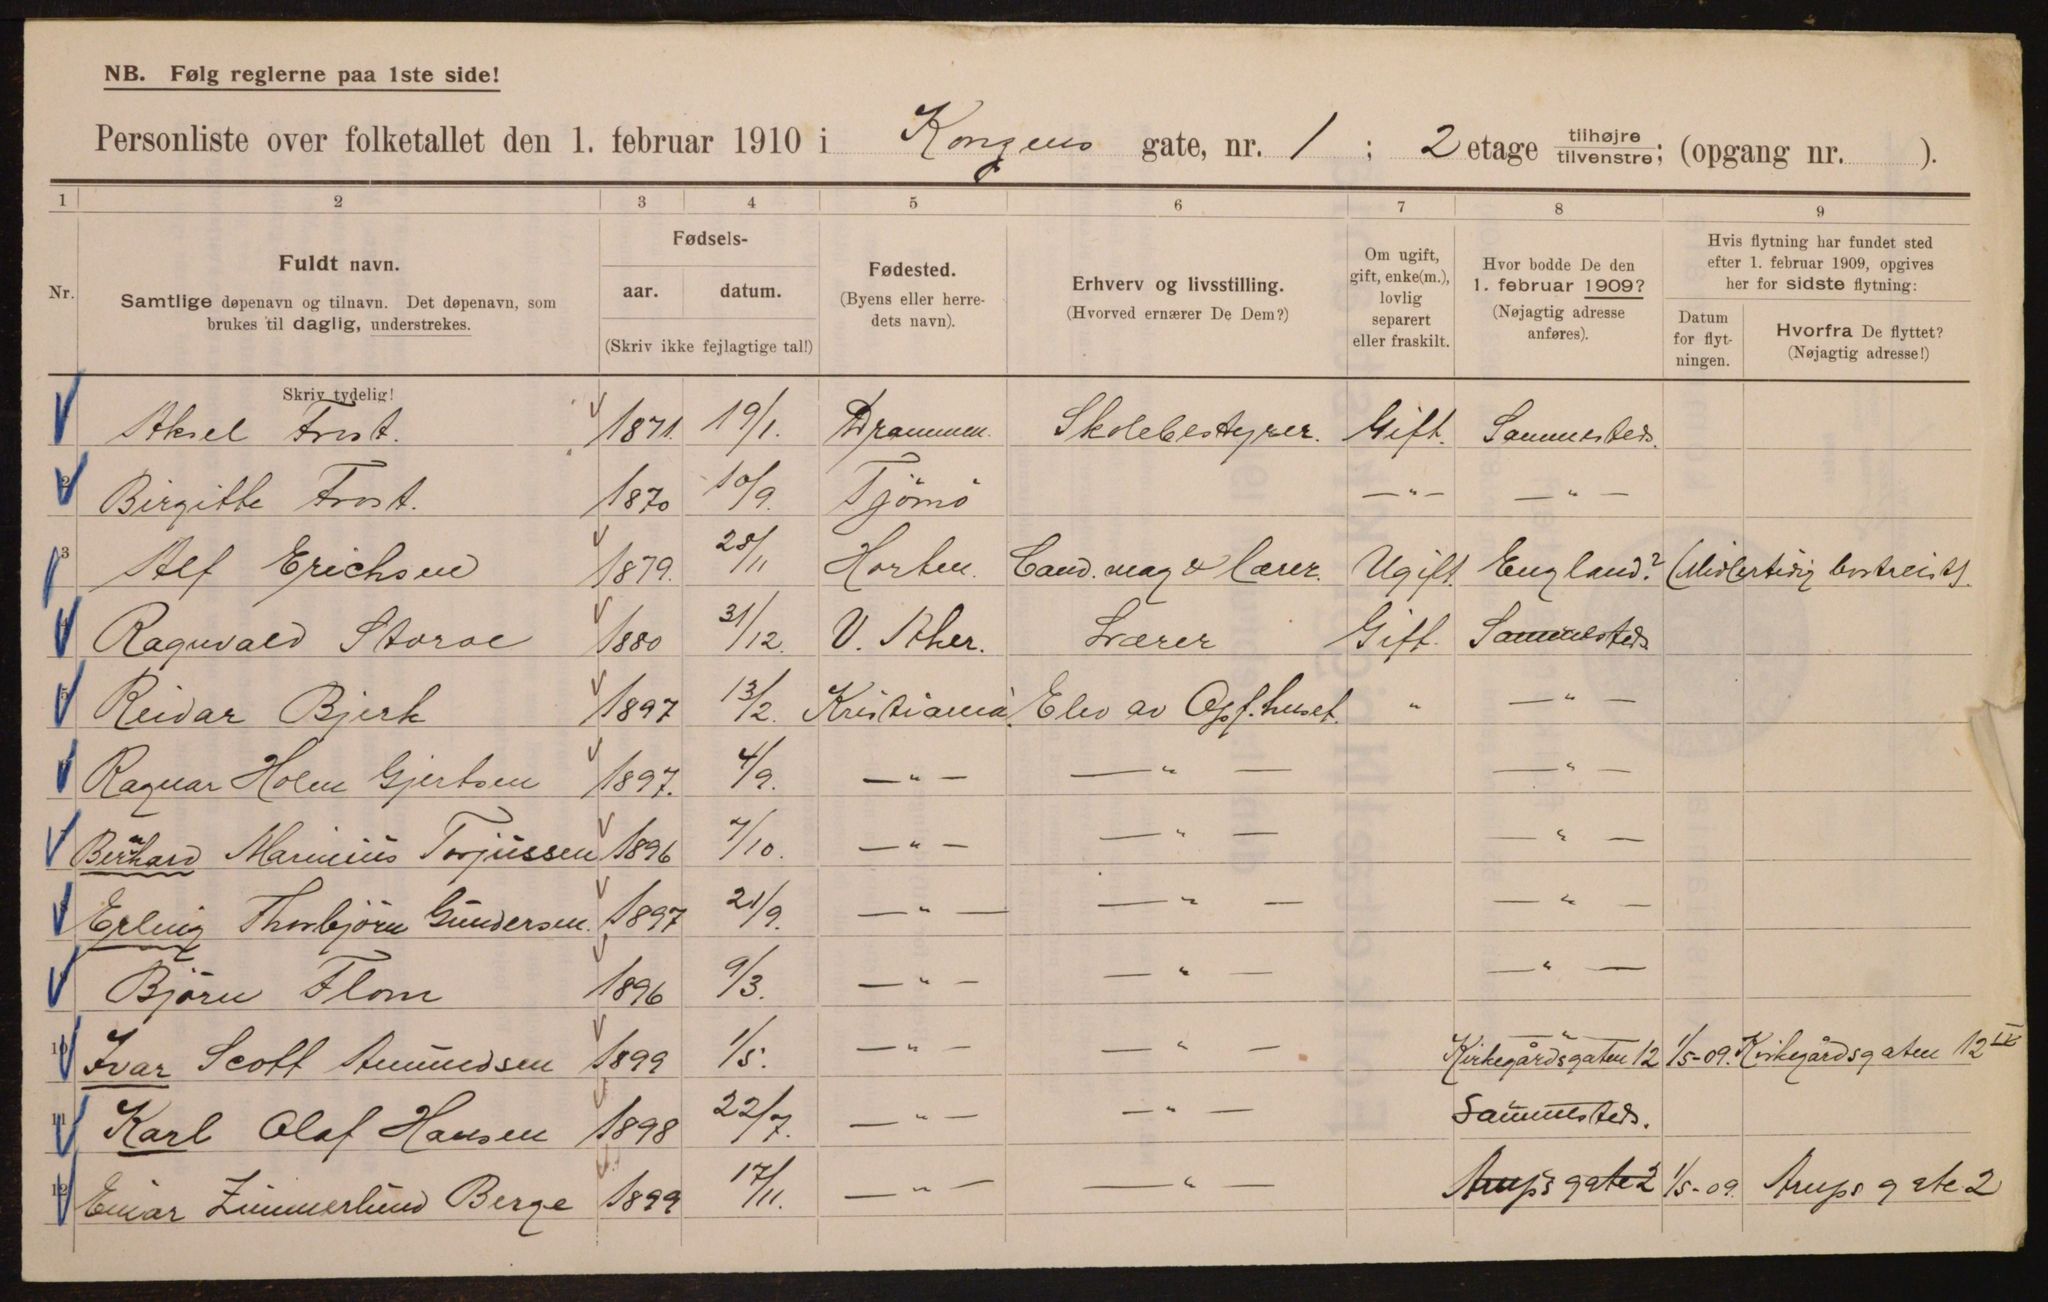 NB. Følg reglerne paa 1ste side!
Personliste over folketallet den 1. februar 1910 i Kongens gate, nr. 1 ; 2 etage tilhøjre/tilvenstre; (opgang nr. ).
1 2 3 4 5 6 7 8 9
Nr.
Fuldt navn.
Samtlige døpenavn og tilnavn. Det døpenavn, som
brukes til daglig, understrekes.
Fødsels-
aar. datum.
(Skriv ikke fejlagtige tal!)
Fødested.
(Byens eller herre-
dets navn).
Erhverv og livsstilling.
(Hvorved ernærer De Dem?)
Om ugift,
gift, enke(m.),
lovlig
separert
eller fraskilt.
Hvor bodde De den
1. februar 1909?
(Nøjagtig adresse
anføres).
Hvis flytning har fundet sted
efter 1. februar 1909, opgives
her for sidste flytning:
Datum
for flyt-
ningen.
Hvorfra De flyttet?
(Nøjagtig adresse!)
Skriv tydelig!
Aksel Frost. 1871. 19/1. Drammen. Skolebestyrer. Gift. Sammesteds.
2 Birgitte Frost. 1870 10/9. Tjömö — " — — " —
3 Alf Erichsen 1879. 28/11 Horten. Cand. mag & Lærer. Ugift. England? (Midlertidig bortreist).
4 Ragnvald Storoe 1880 31/12. V. Aker. Lærer Gift. Sammesteds
5 Reidar Bjerk 1897 13/2. Kristiania. Elev av Opf.huset. " — " —
Ragnar Holm Gjertsen 1897. 4/9. — " — — " — — " —
Bernhard Marinius Torjussen 1896 7/10. — " — — " — — " —
Erling Thorbjörn Gundersen. 1897 21/9. — " — — " — — " —
Björn Flom 1896 9/3. — " — — " — — " —
10 Ivar Scott Amundsen 1899 1/5. — " — — " — — " — Kirkegårdsgaten 12 1/5-09. Kirkegårdsgaten 12 IV
11 Karl Olaf Hansen 1898 22/7. — " — — " — Sammesteds.
12 Einar Zimmerlund Berge 1899 17/11. — " — — " — Arups gate 2 1/5-09. Arups gate 2